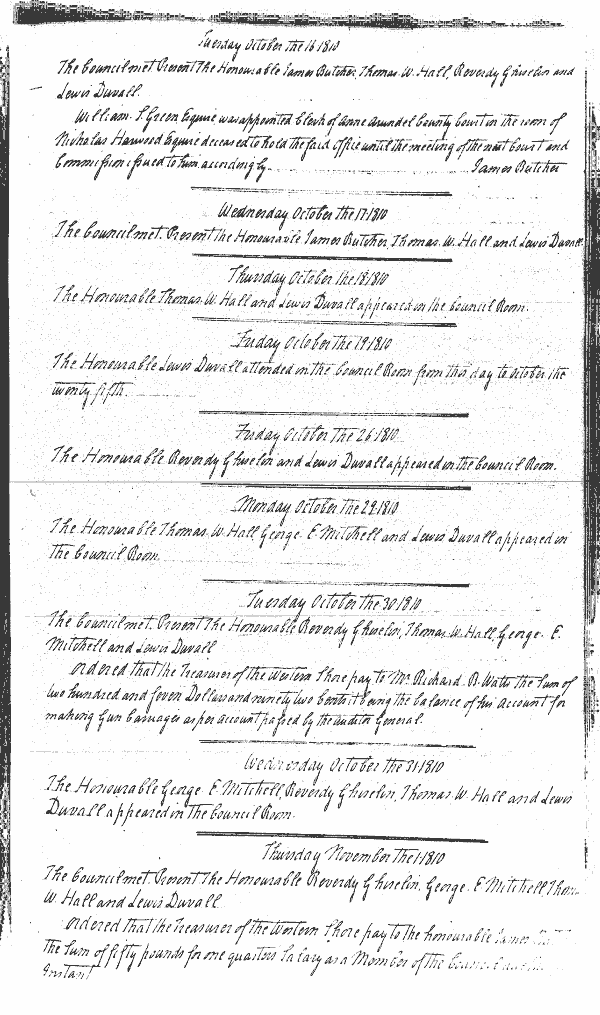 Tuesday October the 16 1810
The Council met. Present The Honourable James Butcher, Thomas W. Hall, Reverdy Ghiselin and
Lewis Duvall.
William S. Green Esquire was appointed Clerk of Anne Arundel County Court in the room of
Nicholas Harwood Esquire deceased to hold the said office until the meeting of the next Court and
Commission issued to him accordingly. James Butcher
Wednesday October the 17 1810
The Council met. Present the Honourable James Butcher, Thomas W. Hall and Lewis Duvall
Thursday October the 18 1810
The Honourable Thomas W. Hall and Lewis Duvall appeared in the Council Room.
Friday October the 19 1810
The Honourable Lewis Duvall attended in the Council Room from this day to October the
twenty fifth.
Friday October the 26 1810
The Honourable Reverdy Ghiselin and Lewis Duvall appeared in the Council Room.
Monday October the 29 1810
The Honourable Thomas W. Hall George E Mitchell and Lewis Duvall appeared in
the Council Room.
Tuesday October the 30 1810
The Council met. Present The Honourable Reverdy Ghiselin, Thomas W. Hall, George E.
Mitchell and Lewis Duvall
Ordered that the Treasurer of the Western Shore pay to Mr. Richard B. Watts the Sum of
two hundred and seven Dollars and ninety two cents it being the balance of his Account for
making Gun Carriages as per account passed by the Auditor General.
Wednesday October the 31 1810
The Honourable George E. Mitchell, Reverdy Ghiselin, Thomas W. Hall and Lewis
Duvall appeared in the Council Room.
Thursday November the 1 1810
The Council met. Present The Honourable Reverdy Ghiselin, George E Mitchell,
W. Hall and Lewis Duvall
Ordered that the Treasurer of the Western Shore pay to the honourable James
the Sum of fifty pounds for one quarters Salary as a Member of the Council
Instant